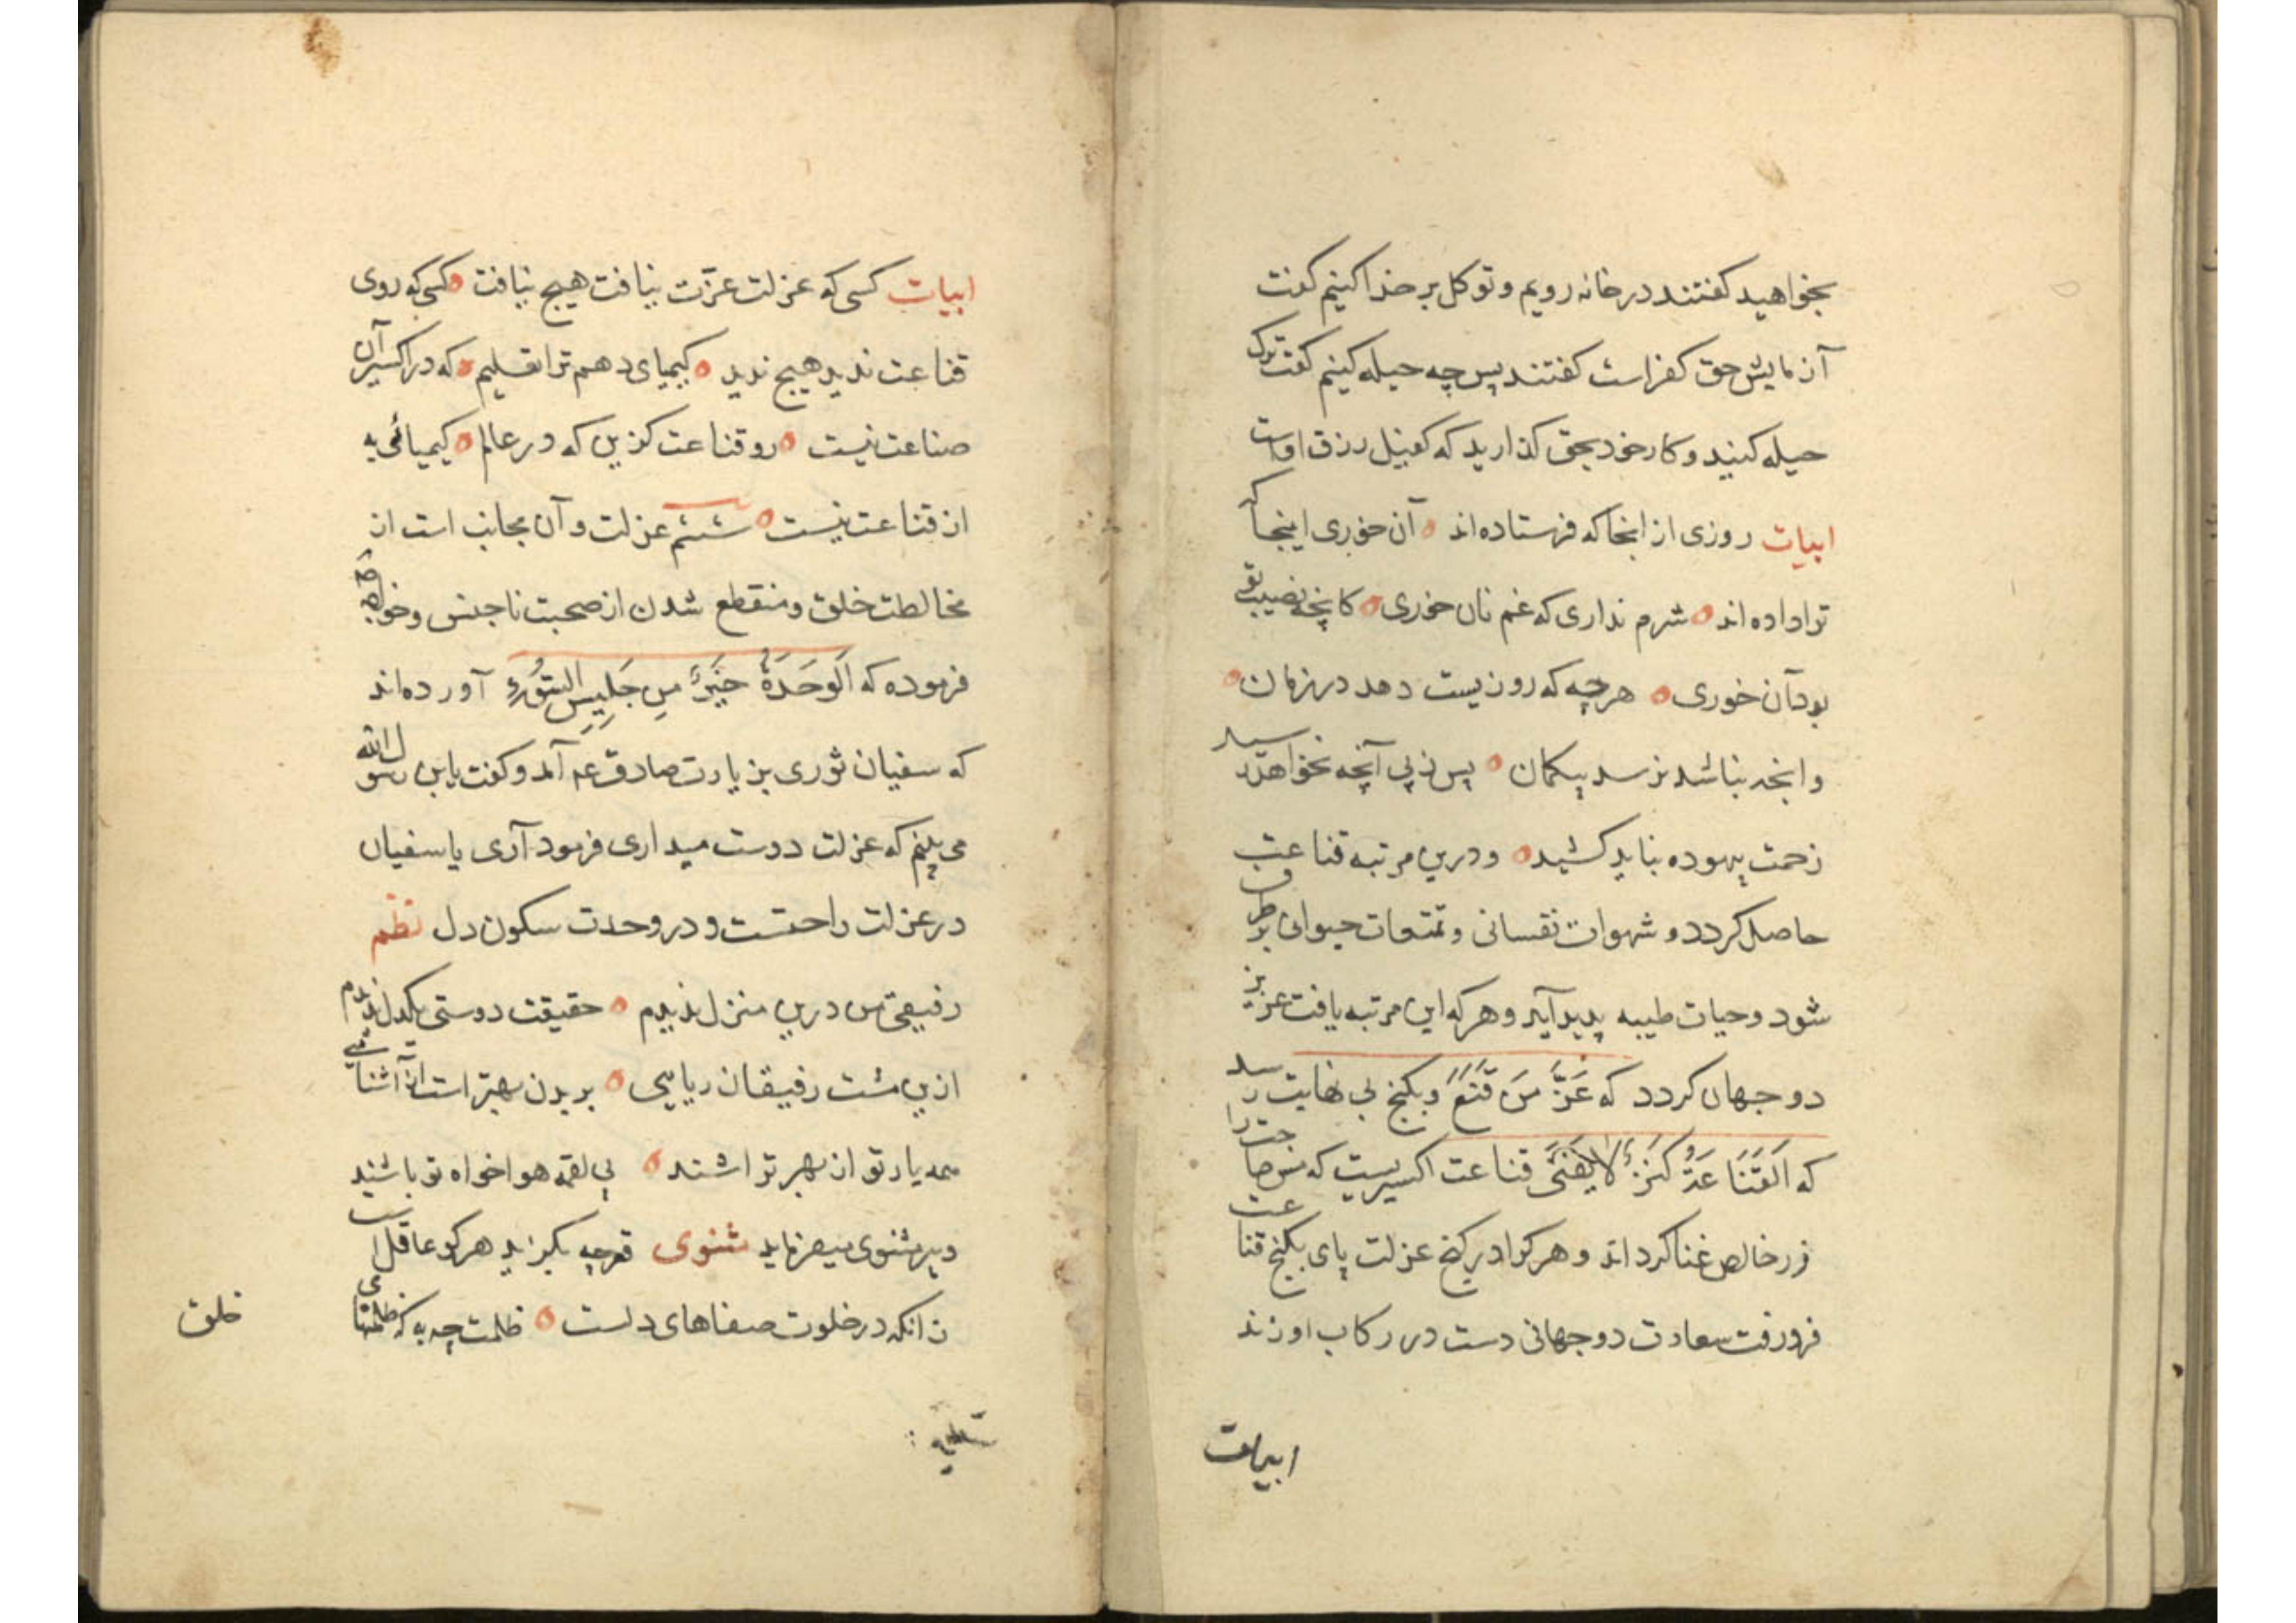 بخواهید کفتند درخانه رویم و توکل بر خدا کنیم کفت
آزمایش حق کفر است کفتند پس چه حیله کنیم کفت ترک
حیله کنید و کار خود بحق کذارید که کفیل رزق اوست
ابیات روزی از انجا که فرستاده اند آن خوری اینجا که
ترا داده اند شرم نداری که غم نان خوری کانچه نصیب تو
بود آن خوری هرچه که روزیست دهد در زمان
وانچه نباشد نرسد بیکمان پس ز پی آنچه نخواهد رسید
زحمت بیهوده نباید کشید و درین مرتبه قناعت
حاصل کردد و شهوات نفسانی و تمتعات حیوانی بر طرف
شود و حیات طیبه پدید آید و هرکه این مرتبه یافت عزیز
دو جهان کردد که عَزَّ مَنْ قَنَعَ و بکنج بی نهایت رسد
که اَلْقَنَاعَةُ کَنْزٌ لَا یَفْنَی قناعت اکسیریست که مس حاجت را
زر خالص غنا کرداند و هر کرا در کنج عزلت پای بکنج قناعت
فرو رفت سعادت دو جهانی دست در رکاب او زند
ابیات
ابیات کسی که عزلت عزّت نیافت هیچ نیافت کسی که روی
قناعت ندید هیچ ندید کیمیای دهم ترا تعلیم که در اکسیر آن
صناعت نیست رو قناعت کزین که در عالم کیمیائی به
از قناعت نیست ششم عزلت و آن مجانب است از
مخالطت خلق و منقطع شدن از صحبت ناجنس و خواجه
فرموده که اَلْوَحْدَةُ خَیْرٌ مِن جَلِیسِ السُّوءِ آورده اند
که سفیان ثوری بزیارت صادق عم آمد و کفت یا بن رسول الله
می بینم که عزلت دوست میداری فرمود آری یا سفیان
در عزلت راحتست و در وحدت سکون دل نظم
رفیقی من درین منزل ندیدم حقیقت دوستی یکدل ندیدم
ازین مشت رفیقان ریایی بریدن بهتر است از آشنایی
همه یار تو از بهر تراشند پی لقمه هواخواه تو باشند
و پیر مثنوی میفرماید مثنوی قعر چه بکزاید هر کو عاقل است
زانکه در خلوت صفاهای دلست ظلمت چه به که ظلمتهای
خلق